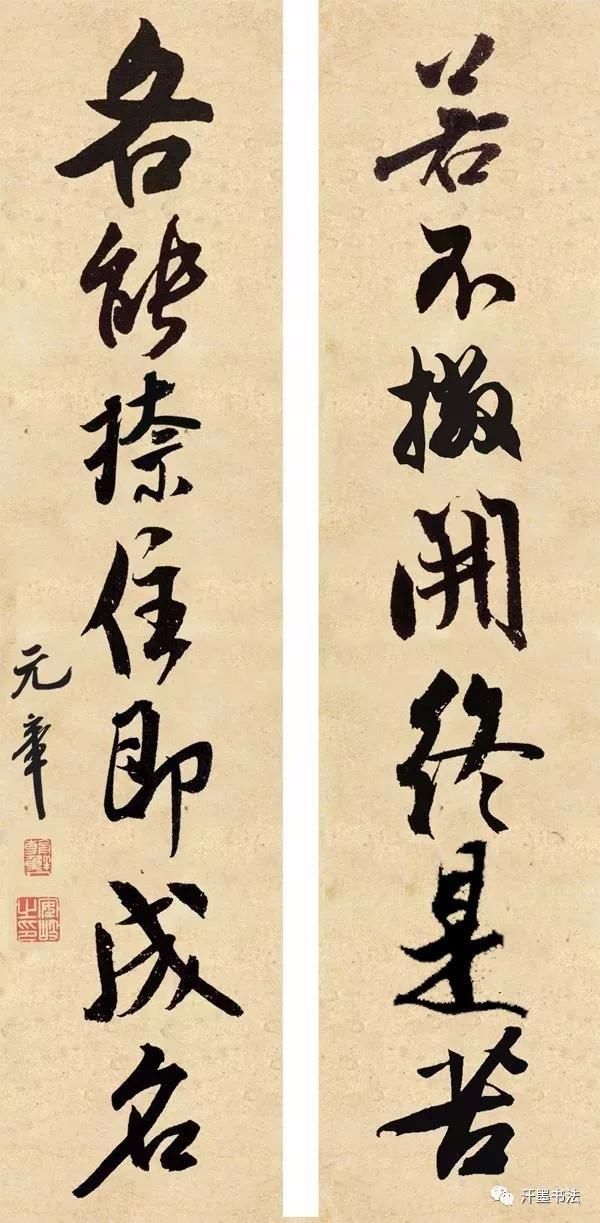 若不撇開終是苦
各能捺住即成名
元章
汗墨书法